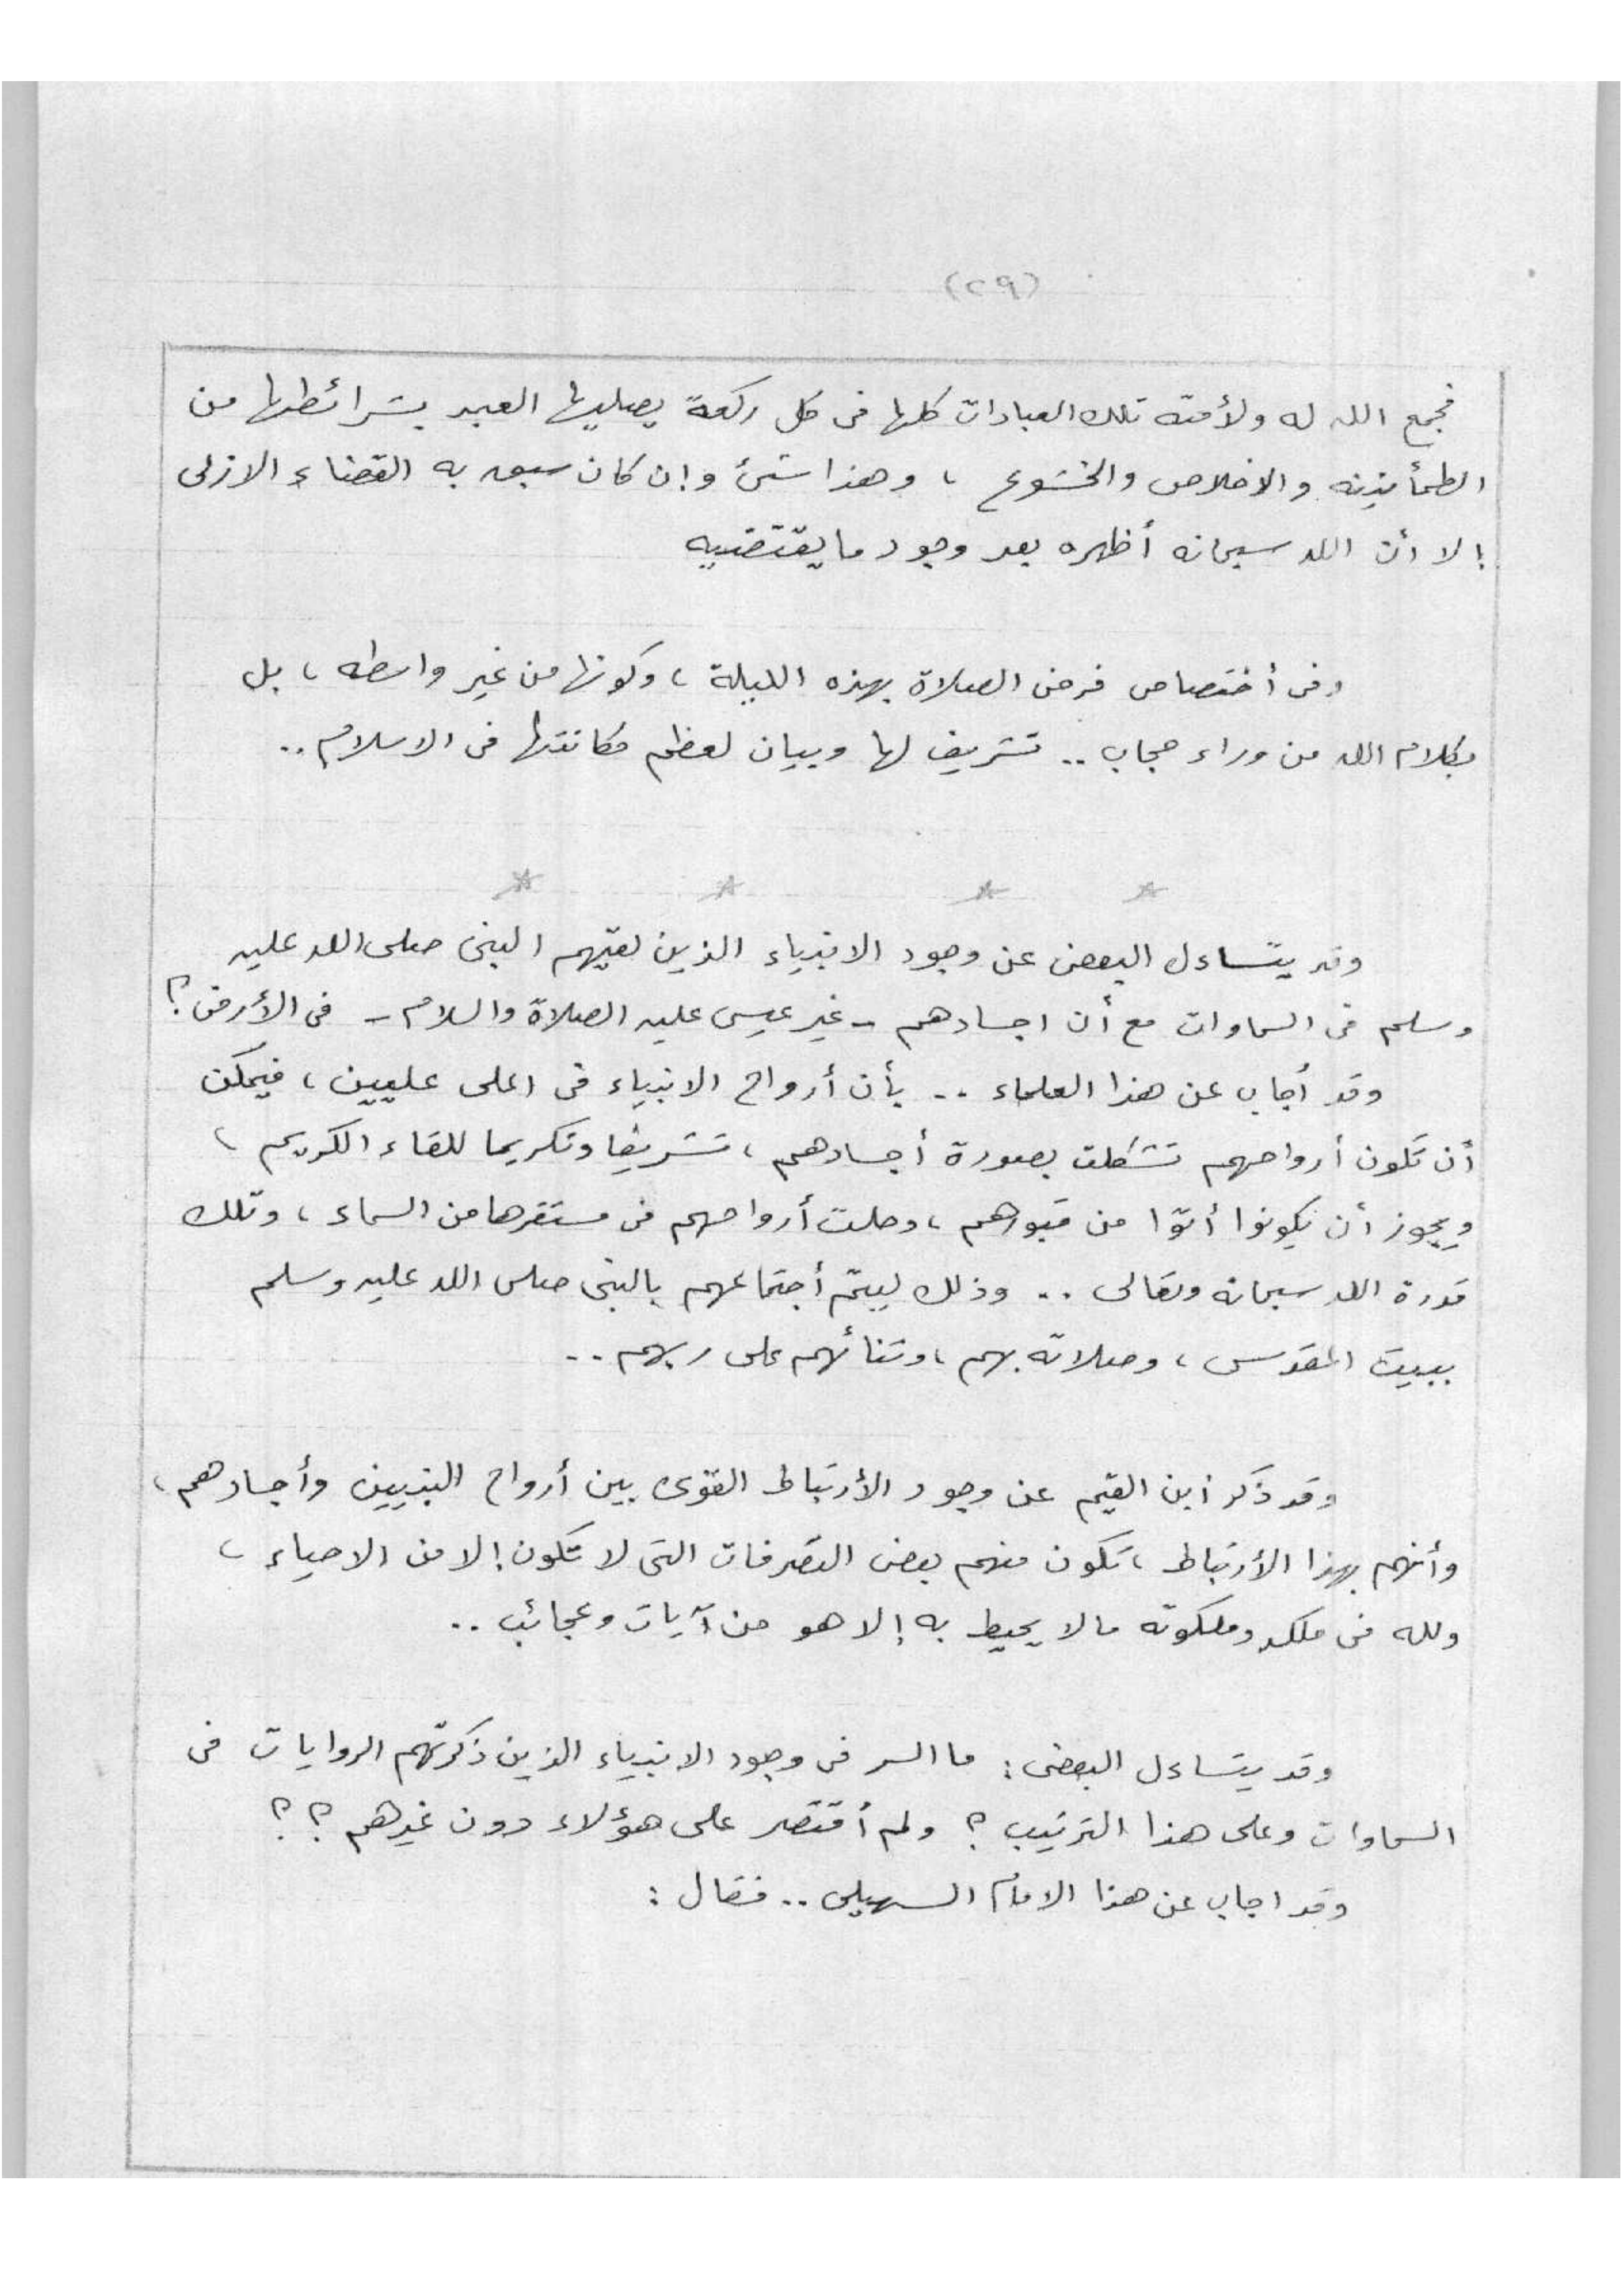 (٢٩)
فجمع الله له ولأمته تلك العبادات كلها فى كل ركعة يصليها العبد بشرائطها من
الطمأنينه والاخلاص والخشوع ، وهذا شئ وإن كان سبق به القضاء الازلى
إلا أن الله سبحانه أظهره بعد وجود ما يقتضيه
وفى أختصاص فرض الصلاة بهذه الليلة ، وكونها من غير واسطه ، بل
بكلام الله من وراء حجاب .. تشريف لها وبيان لعظم مكانتها فى الاسلام ..
وقد يتساءل البعض عن وجود الانبياء الذين لقيهم النبى صلى الله عليه
وسلم فى السماوات مع أن اجسادهم - غير عيسى عليه الصلاة والسلام - فى الأرض ؟
وقد أجاب عن هذا العلماء .. بأن أرواح الانبياء فى اعلى عليين ، فيمكن
أن تكون أرواحهم تشكلت بصورة أجسادهم ، تشريفا وتكريما للقاء الكريم ،
ويجوز أن يكونوا أتوا من قبورهم ، وحلت أرواحهم فى مستقرها من السماء ، وتلك
قدرة الله سبحانه وتعالى .. وذلك ليتم أجتماعهم بالنبى صلى الله عليه وسلم
ببيت المقدس ، وصلاته بهم ، وثنائهم على ربهم ..
وقد ذكر أبن القيم عن وجود الأرتباط القوى بين أرواح النبيين وأجسادهم ،
وأنهم بهذا الأرتباط ، تكون منهم بعض التصرفات التى لا تكون إلا من الاحياء ،
ولله فى ملكه وملكوته مالا يحيط به إلا هو من آيات وعجائب ..
وقد يتساءل البعض : ما السر فى وجود الانبياء الذين ذكرتهم الروايات فى
السماوات وعلى هذا الترتيب ؟ ولم أقتصر على هؤلاء دون غيرهم ؟ ؟
وقد اجاب عن هذا الامام السهيلى .. فقال :